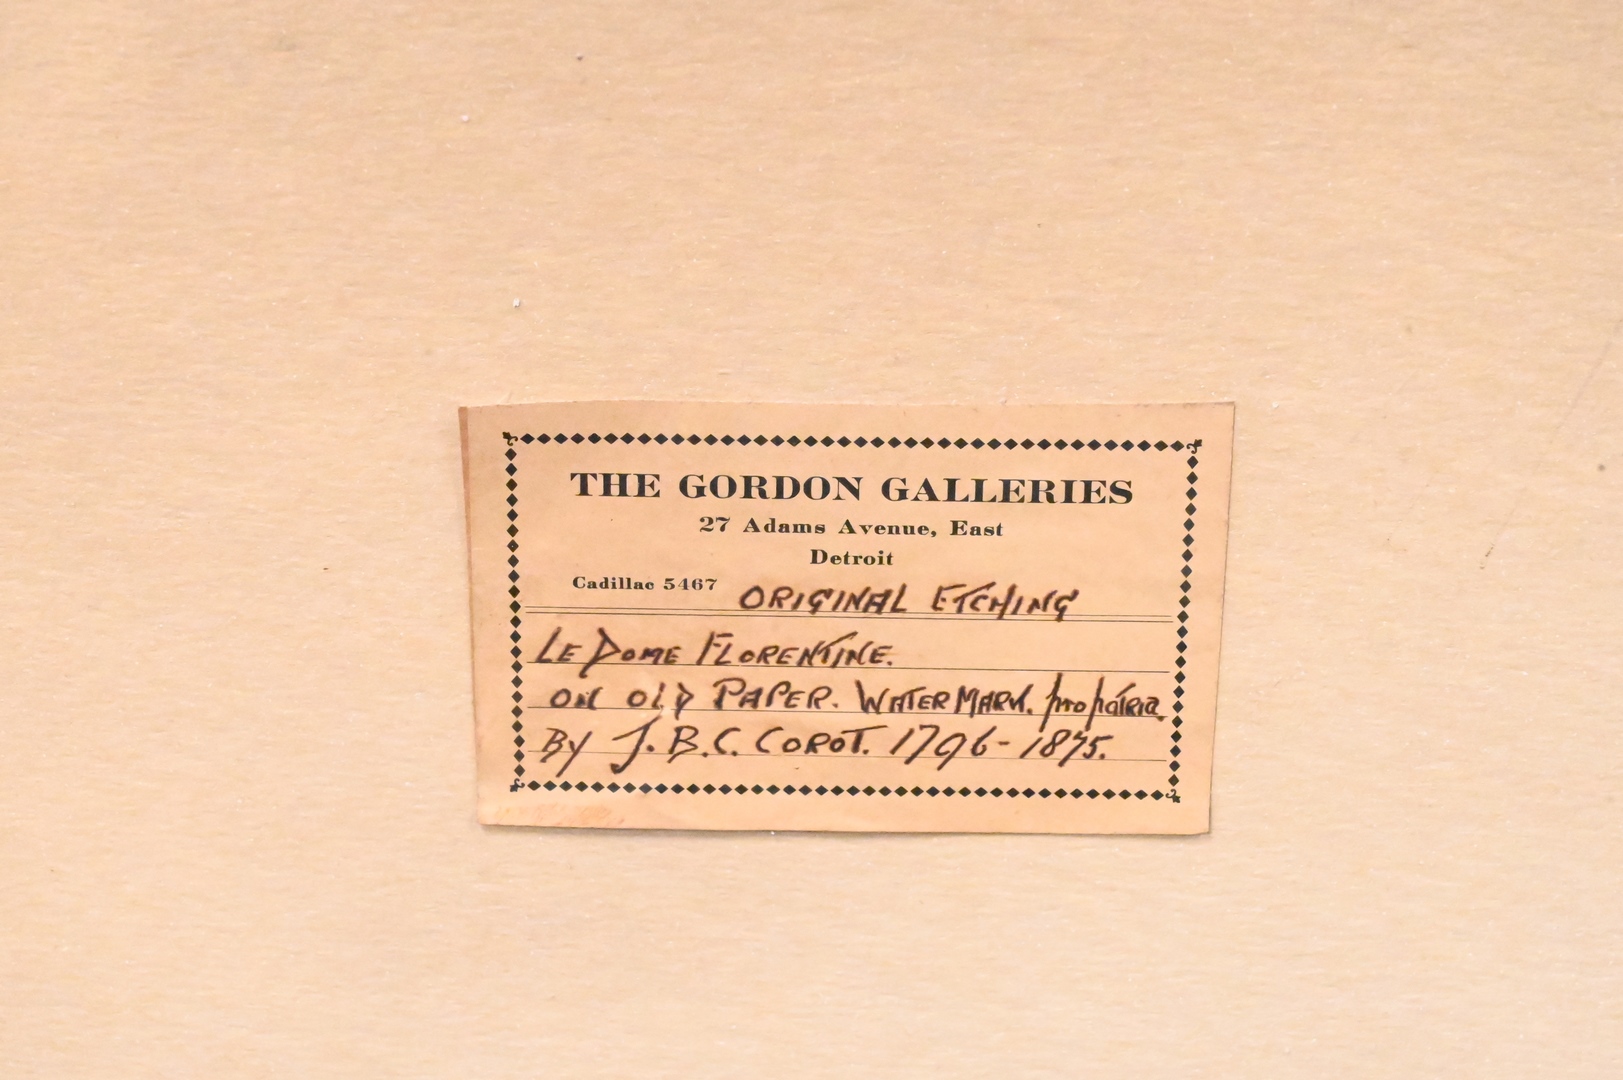 THE GORDON GALLERIES
27 Adams Avenue, East
Detroit
Cadillac 5467 ORIGINAL ETCHING
LE DOME FLORENTINE.
ON OLD PAPER. WATERMARK. propatria.
BY J.B.C. COROT. 1796-1875.